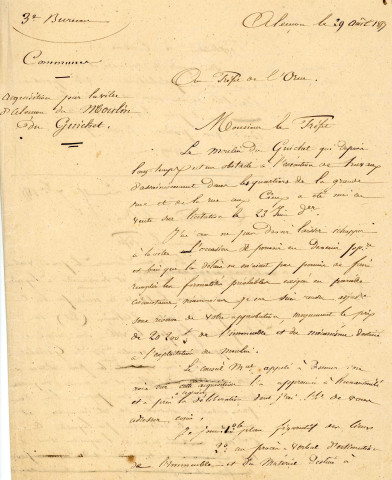 3e Bureau
Alençon le 29 août
Commune
Acquisition pour la ville
d'Alençon du Moulin
du Guichet.
Au Préfet de l'Orne.
Monsieur le Préfet
Le moulin du Guichet qui depuis
longtemps est un obstacle à l'exécution de travaux
d'assainissement dans les quartiers de la grande
rue et de la rue aux Cieux a été mis en
vente sur licitation le 23 Juin der.
Je n'ai pas devoir laisser échapper
à la ville l'occasion de pouvoir en devenir
et bien que le délai ne m'eut pas permis de faire
remplir les formalités préalables exigées en pareille
circonstance, je m'en suis rendu adjud.
sous réserve de votre approbation, moyennant le prix
de 20 200 f. de l'immeuble et du mécanisme destiné
à l'exploitation du moulin.
Le conseil Mal appelé à donner son
avis sur cette acquisition l'a approuvée à l'unanimité
et a pris la délibération dont j'ai l'hr de vous
adresser copie.
Je joins 1° le plan figuratif des lieux
2° au procès-verbal d'estimation
de l'immeuble et du matériel destiné à